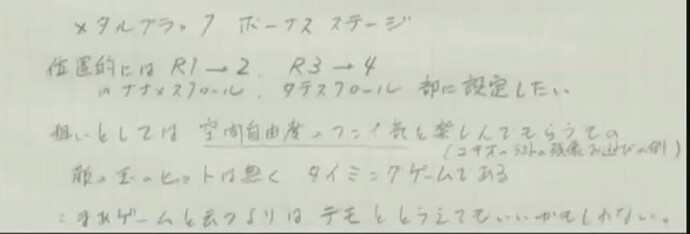 メタルブラック ボーナス ステージ
位置的には R1→2、R3→4
のナナメスクロール、タテスクロール 部に設定したい
狙いとしては 空間自由度の フンイ気を楽しんでもらうもの
敵の玉のヒットは無く タイミングゲームである
ゲームと云うよりは デモととらえてもいいかもしれない。